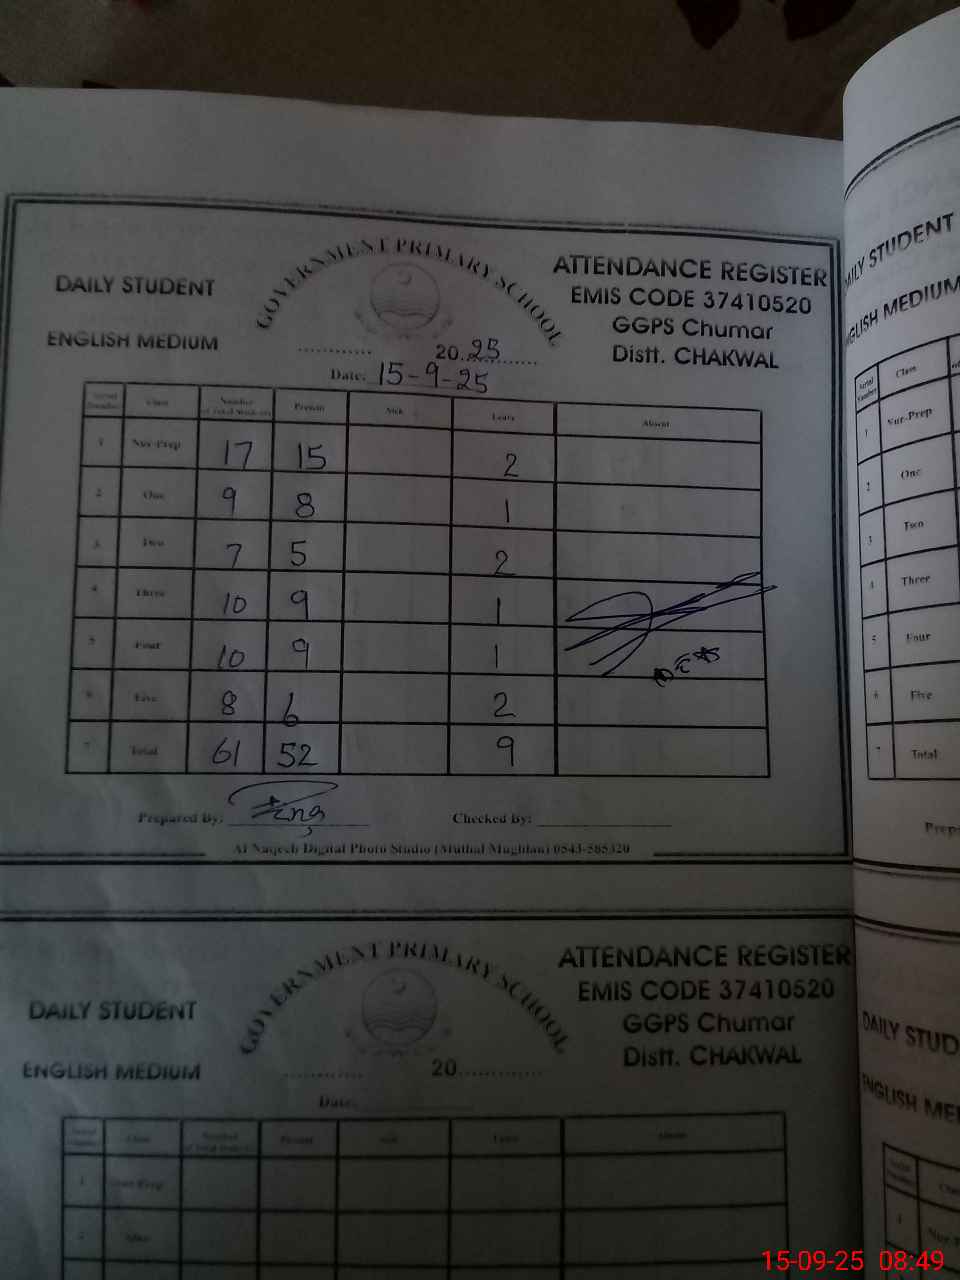 GOVERNMENT PRIMARY SCHOOL
DAILY STUDENT
ATTENDANCE REGISTER
EMIS CODE 37410520
ENGLISH MEDIUM
GGPS Chumar
............ 20.25.........
Distt. CHAKWAL
Date: 15-9-25
Serial Number Class Number of Total Students Present Sick Leave Absent
1 Nur-Prep 17 15 2
2 One 9 8 1
3 Two 7 5 2
4 Three 10 9 1
5 Four 10 9 1
6 Five 8 6 2
7 Total 61 52 9
Prepared By:
Checked By:
Al Naqeeb Digital Photo Studio (Muthal Mughlan) 0543-585320
GOVERNMENT PRIMARY SCHOOL
DAILY STUDENT
ATTENDANCE REGISTER
EMIS CODE 37410520
ENGLISH MEDIUM
GGPS Chumar
............ 20............
Distt. CHAKWAL
Date:
Serial Number Class Number of Total Students Present Sick Leave Absent
1 Nur-Prep
2
DAILY STUDENT
ENGLISH MEDIUM
Serial Number Class
1 Nur-Prep
2 One
3 Two
4 Three
5 Four
6 Five
7 Total
Prep
DAILY STUD
ENGLISH ME
15-09-25 08:49